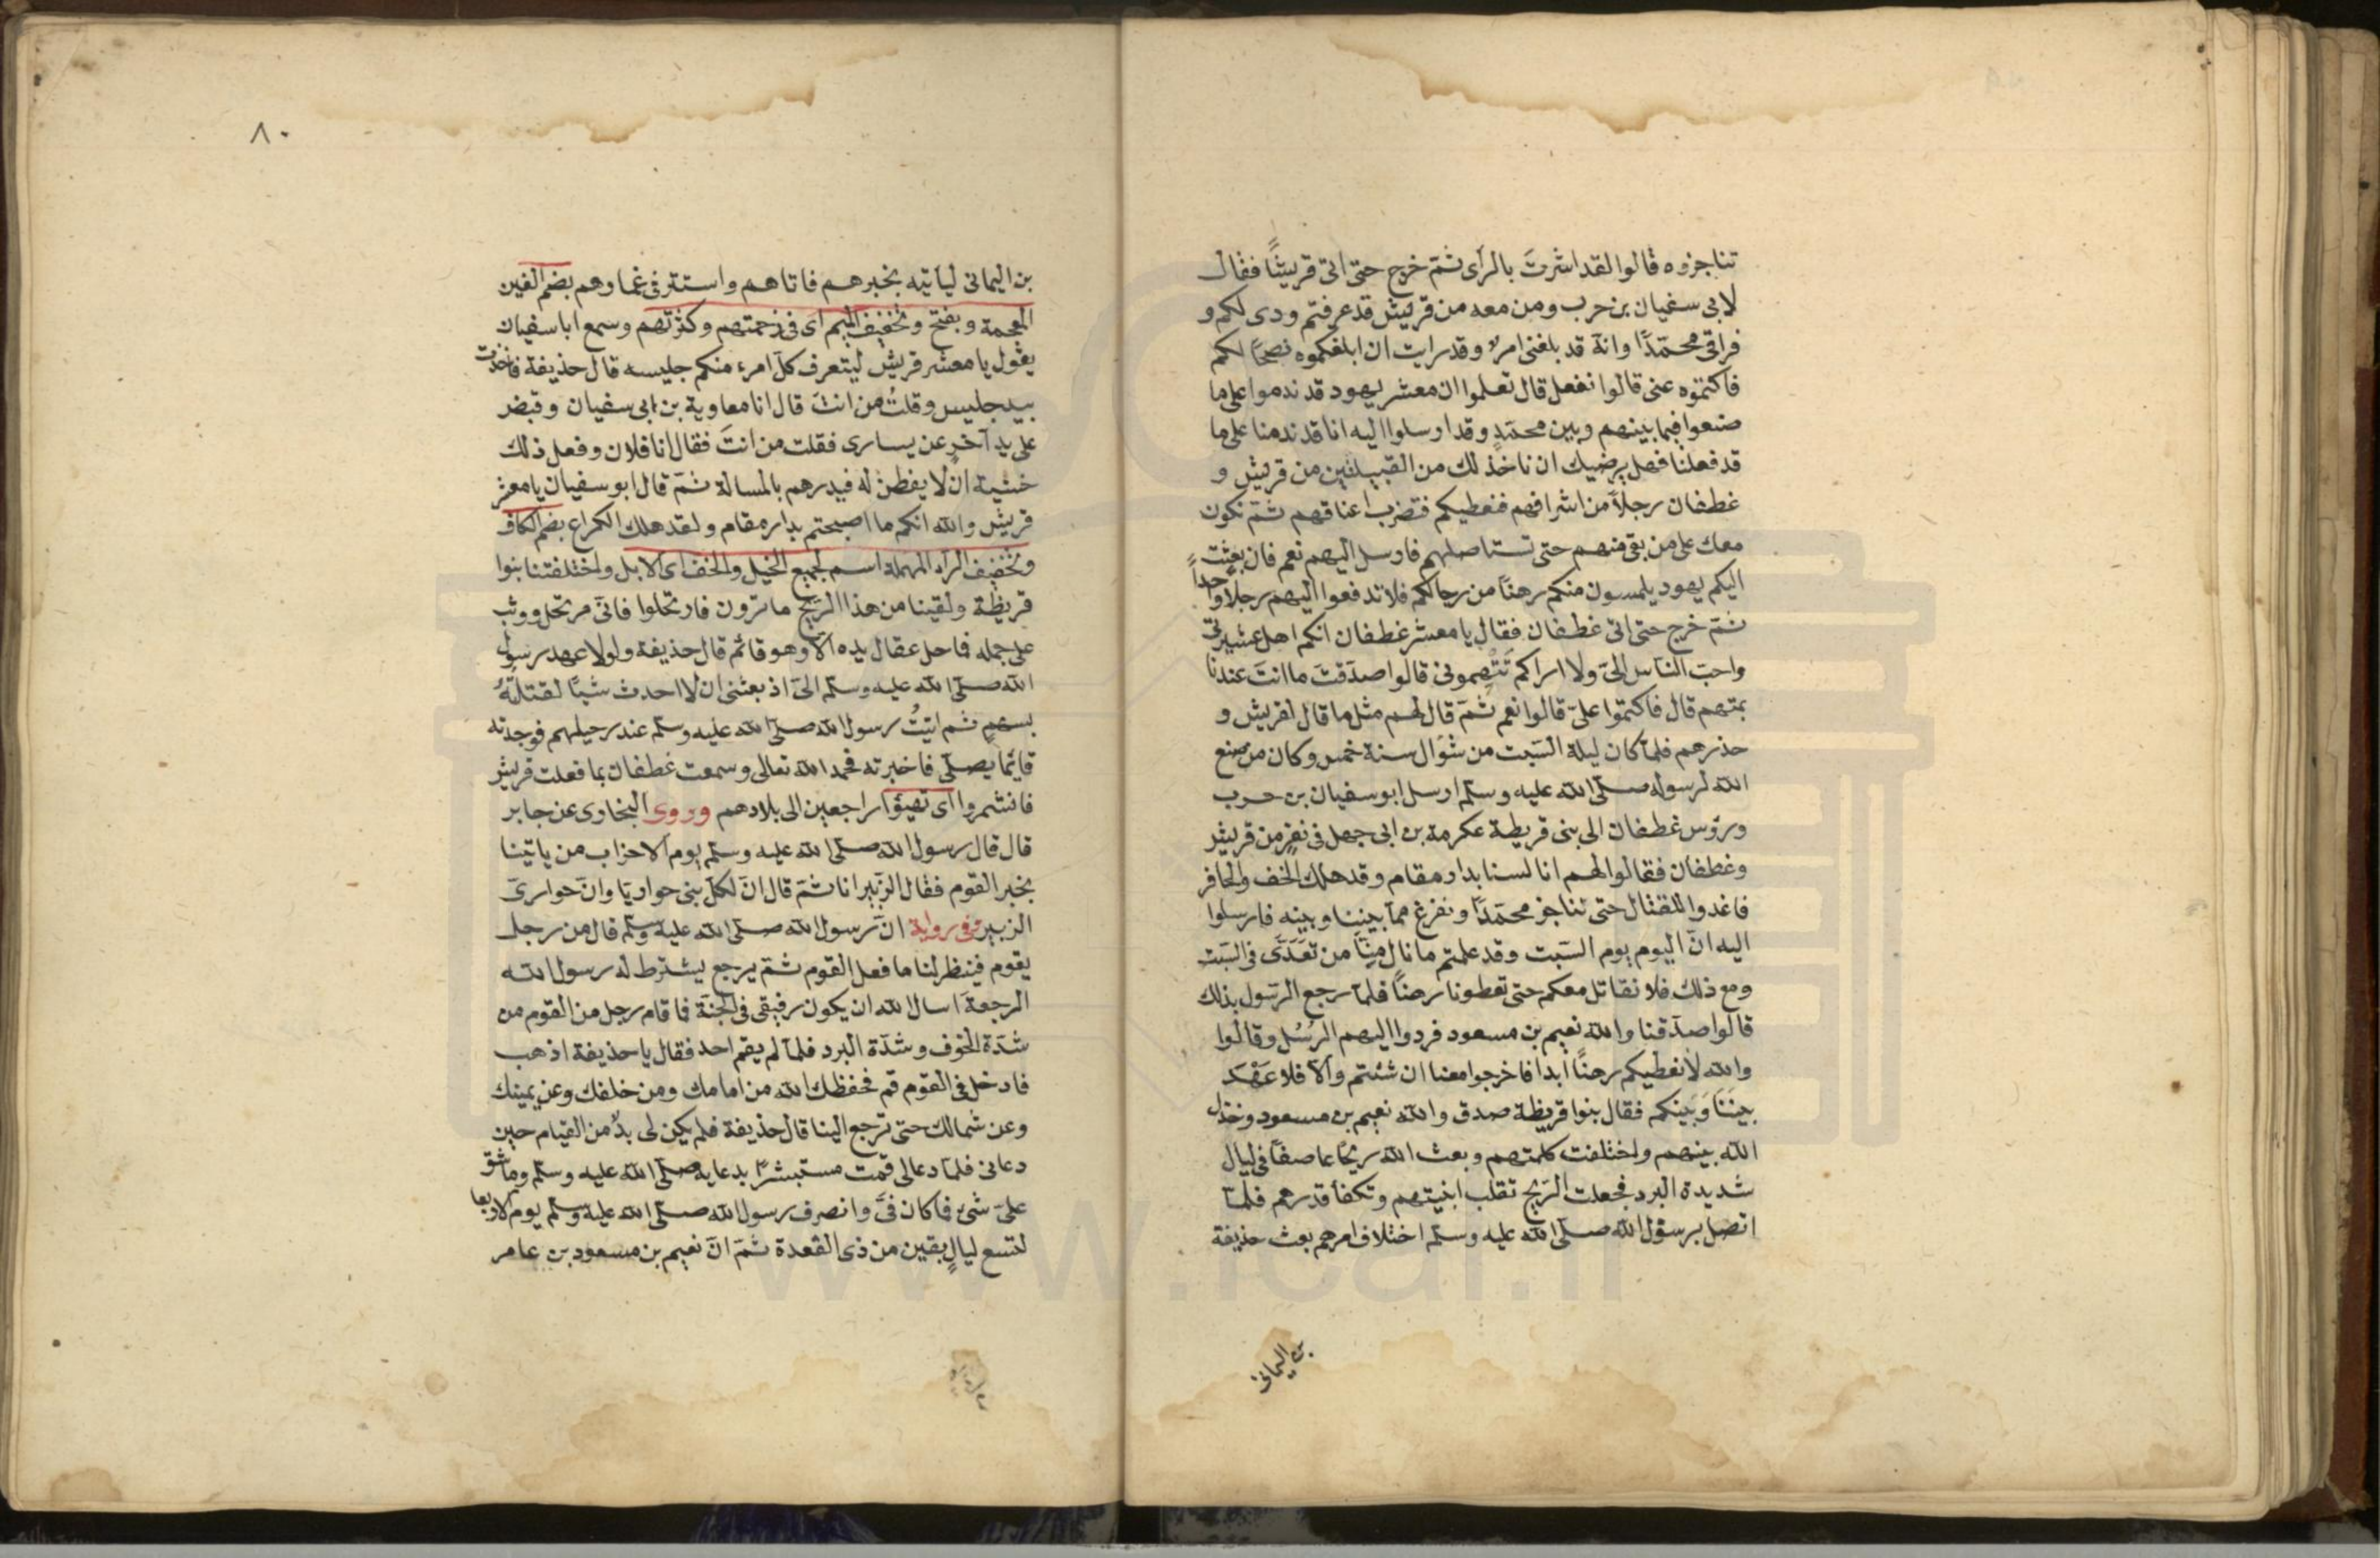 تناجزوه قالوا لقد اشرتَ بالرأى ثمّ خرج حتى اتى قريشًا فقال
لابى سفيان بن حرب ومن معه من قريش قد عرفتم ودى لكم و
فراقى محمّدًا وانّه قد بلغنى امرٌ وقد رايت ان ابلغكموه نصحًا لكم
فاكتموه عنى قالوا نفعل قال تعلموا ان معشر يهود قد ندموا على ما
صنعوا فيما بينهم وبين محمّدٍ وقد ارسلوا اليه انا قد ندمنا على ما
قد فعلنا فهل يرضيك ان ناخذ لك من القبيلتين من قريش و
غطفان رجلاً من اشرافهم فنعطيكم فتضرب اعناقهم ثمّ نكون
معك على من بقى منهم حتى تستاصلهم فارسل اليهم نعم فان بعثت
اليكم يهود يلمسون منكم رهنًا من رجالكم فلا تدفعوا اليهم رجلاً واحداً
ثمّ خرج حتى اتى غطفان فقال يا معشر غطفان انكم اهل عشيرتى
واحبّ النّاس الىّ ولا اراكم تَتْهِمونى قالوا صدَقتَ ما انتَ عندنا
بمتهم قال فاكتموا علىّ قالوا نعم ثمّ قال لهم مثل ما قال لقريش و
حذرهم فلمّا كان ليلة السّبت من شوّال سنة خمس وكان من صنع
الله لرسوله صلّى الله عليه وسلّم ارسل ابو سفيان بن حرب
ورؤس غطفان الى بنى قريظة عكرمة بن ابى جهل فى نفرٍ من قريش
وغطفان فقالوا لهم انا لسنا بدار مقام وقد هلك الخف والحافر
فاغدوا للقتال حتى نناجز محمّدًا ونفرغ ممّا بيننا وبينه فارسلوا
اليه انّ اليوم يوم السّبت وقد علمتم ما نال مِنّا من تَعَدّى فى السّبت
ومع ذلك فلا نقاتل معكم حتى تعطونا رهنًا فلمّا رجع الرّسول بذلك
قالوا صدّقنا والله نعيم بن مسعود فردوا اليهم الرُسُل وقالوا
والله لا نعطيكم رهنًا ابدا فاخرجوا معنا ان شئتم والّا فلا عَهْدَ
بيننَا وَبَينكم فقال بنوا قريظة صدق والله نعيم بن مسعود وخذل
الله بينهم واختلفت كلمتهم وبعث الله ريحًا عاصفًا فى ليال
شديدة البرد فجعلت الرّيح تقلب ابنيتهم وتكفأ قدرهم فلمّا
اتصل برسول الله صلّى الله عليه وسلّم اختلاف امرهم بعث حذيفة
بن اليمانى
٨٠
بن اليمانى لياتيه بخبرهم فاتاهم واستتر فى غمارهم بضم الغين
المعجمة وبفتح وتخفيف الميم اى فى زحمتهم وكثرتهم وسمع ابا سفيان
يقول يا معشر قريش ليتعرف كلّ امرء منكم جليسه قال حذيفة فاخذت
بيد جليس وقلتُ من انتَ قال انا معاوية بن ابى سفيان وقبض
على يد آخر عن يسارى فقلت من انتَ فقال انا فلان وفعل ذلك
خشية ان لا يفطن له فيدرهم بالمسالة ثمّ قال ابو سفيان يا معشر
قريش والله انكم ما اصبحتم بدار مقام ولقد هلك الكراع بضم الكاف
وتخفيف الرّاء المهملة اسم لجميع الخيل والخف اى الابل واختلفتنا بنوا
قريظة ولقينا من هذا الرّيح ما ترون فارتحلوا فانّى مرتحل ووثب
على جمله فما حل عقال يده الّا وهو قائم قال حذيفة ولولا عهد رسول
الله صلّى الله عليه وسلّم الىّ اذ بعثنى ان لا احدث شيئًا لقتلتُهُ
بسهم ثم اتيتُ رسول الله صلّى الله عليه وسلّم عند رحيلهم فوجدته
قائمًا يصلّى فاخبرته فحمد الله تعالى وسمعت غطفان بما فعلت قريش
فانشمروا اى تهيؤا راجعين الى بلادهم وروى البخاوى عن جابر
قال قال رسول الله صلّى الله عليه وسلّم يوم الاحزاب من ياتينا
بخبر القوم فقال الزّبير انا ثمّ قال انّ لكلّ بنى حواريّا وانّ حوارىّ
الزبير وفى رواية انّ رسول الله صلّى الله عليه وسلّم قال من رجل
يقوم فينظر لنا ما فعل القوم ثمّ يرجع يشترط له رسول الله
الرجعة اسال الله ان يكون رفيقى فى الجنّة فما قام رجل من القوم من
شدّة الخوف وشدّة البرد فلمّا لم يقم احد فقال يا حذيفة اذهب
فادخل فى القوم قم فحفظك الله من امامك ومن خلفك وعن يمينك
وعن شمالك حتى ترجع الينا قال حذيفة فلم يكن لى بدٌّ من القيام حين
دعانى فلمّا دعا لى قمت مستبشرًا بدعايه صلّى الله عليه وسلّم وما شق
علىّ شىء فما كان فىَّ وانصرف رسول الله صلّى الله عليه وسلّم يوم الاربعا
لتسع ليالٍ بقين من ذى القعدة ثمّ انّ نعيم بن مسعود بن عامر
www.ical.ir